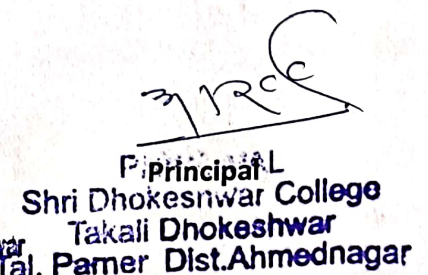 Principal
Shri Dhokeshwar College
Takali Dhokeshwar
Tal. Parner Dist.Ahmednagar